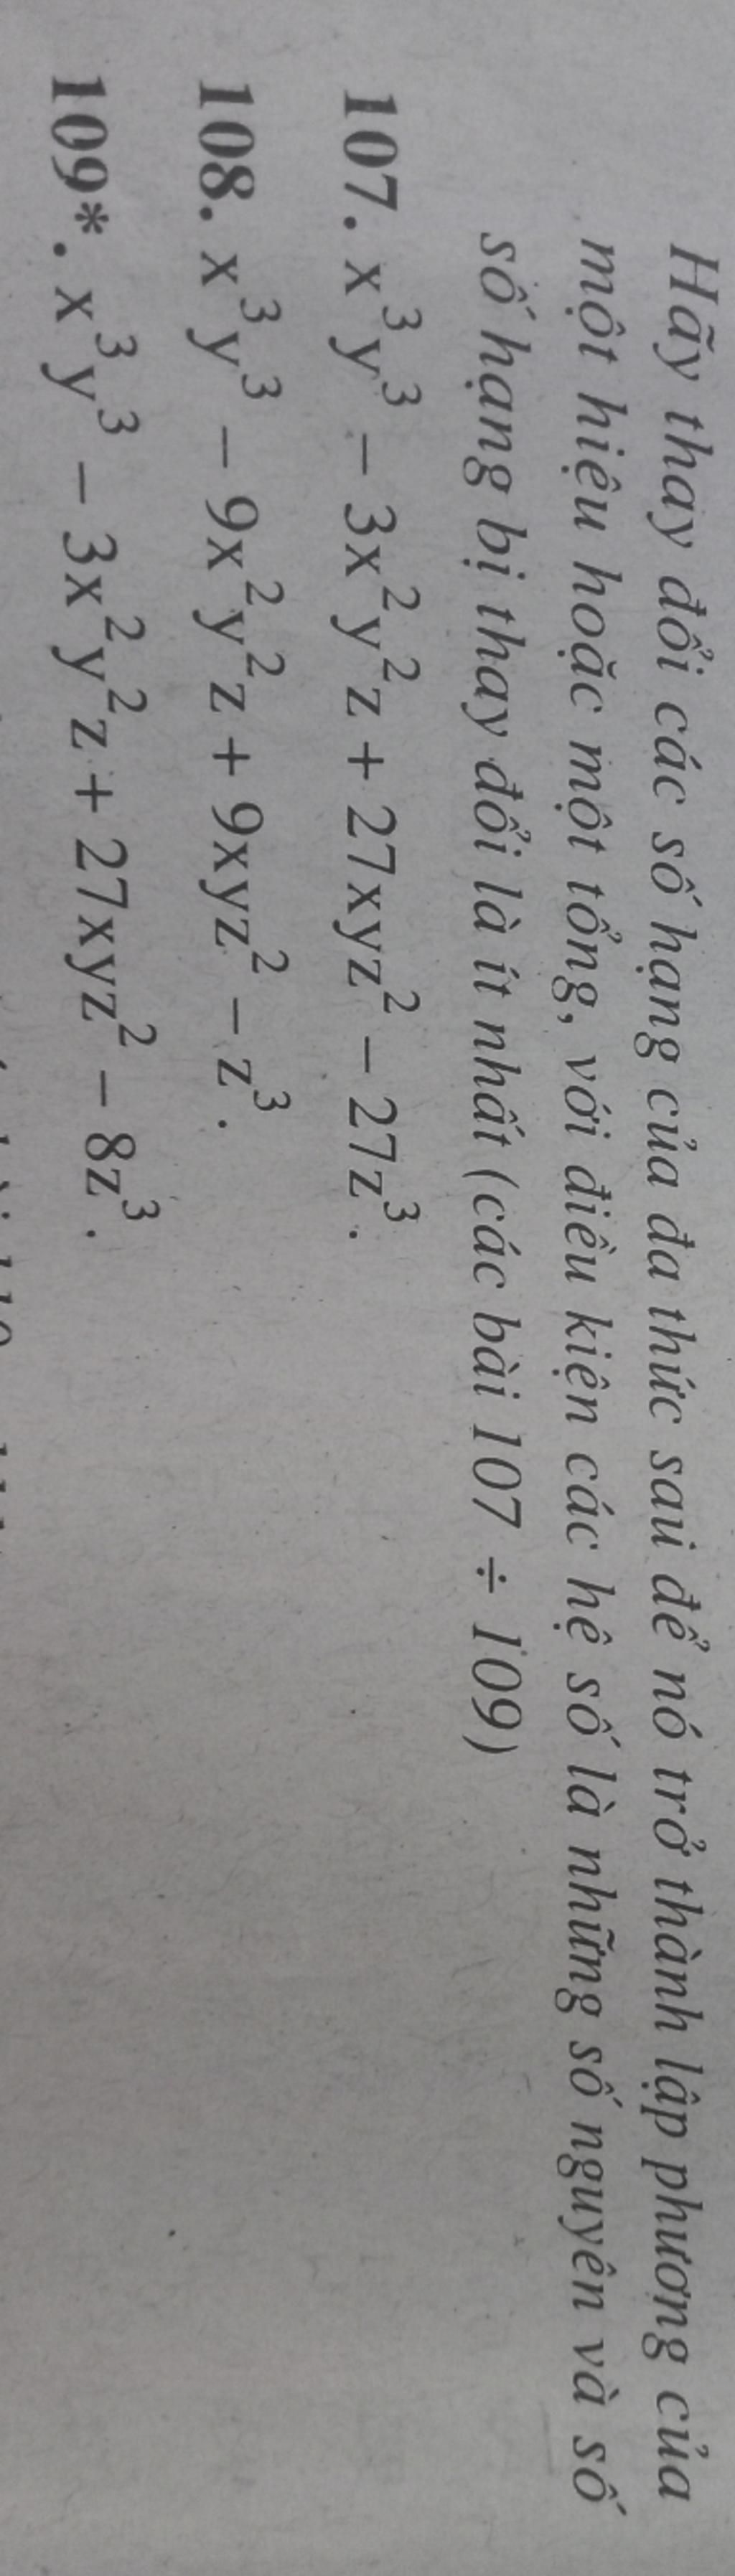 Hãy thay đổi các số hạng của đa thức sau để nó trở thành lập phương của
một hiệu hoặc một tổng, với điều kiện các hệ số là những số nguyên và số
số hạng bị thay đổi là ít nhất (các bài 107 ÷ 109)
107. x³y³ – 3x²y²z + 27xyz² – 27z³.
108. x³y³ – 9x²y²z + 9xyz² – z³.
109*. x³y³ – 3x²y²z + 27xyz² – 8z³.